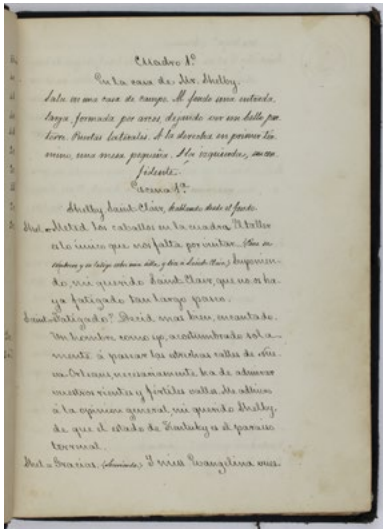 Cuadro 1º
En la casa de Mr. Shelby.
Sala en una casa de campo. Al fondo una entrada
larga, formada por arcos, dejando ver un bello par
terre. Puertas laterales. A la derecha en primer tér
mino, una mesa pequeña. A la izquierda, un con
fidente.
Escena 1ª
Shelby Saint-Clair, hablando desde el fondo.
Shel. Meted los caballos en la cuadra. El taller
es lo único que nos falta por visitar. y dice á Saint-Clair) Suponien-
do, mi querido Saint-Clair, que no os ha-
ya fatigado tan largo paseo.
Saint. Fatigado? Decid mas bien, encantado.
Un hombre como yo, acostumbrado sola-
mente á pasear las estrechas calles de Nue-
va Orleans, necesariamente ha de admirar
vuestros rientes y fértiles valles. Me adhiero
á la opinion general, mi querido Shelby,
de que el estado de Kentuky es el paraiso
terrenal.
Shel. Gracias. Y miss Evangelina